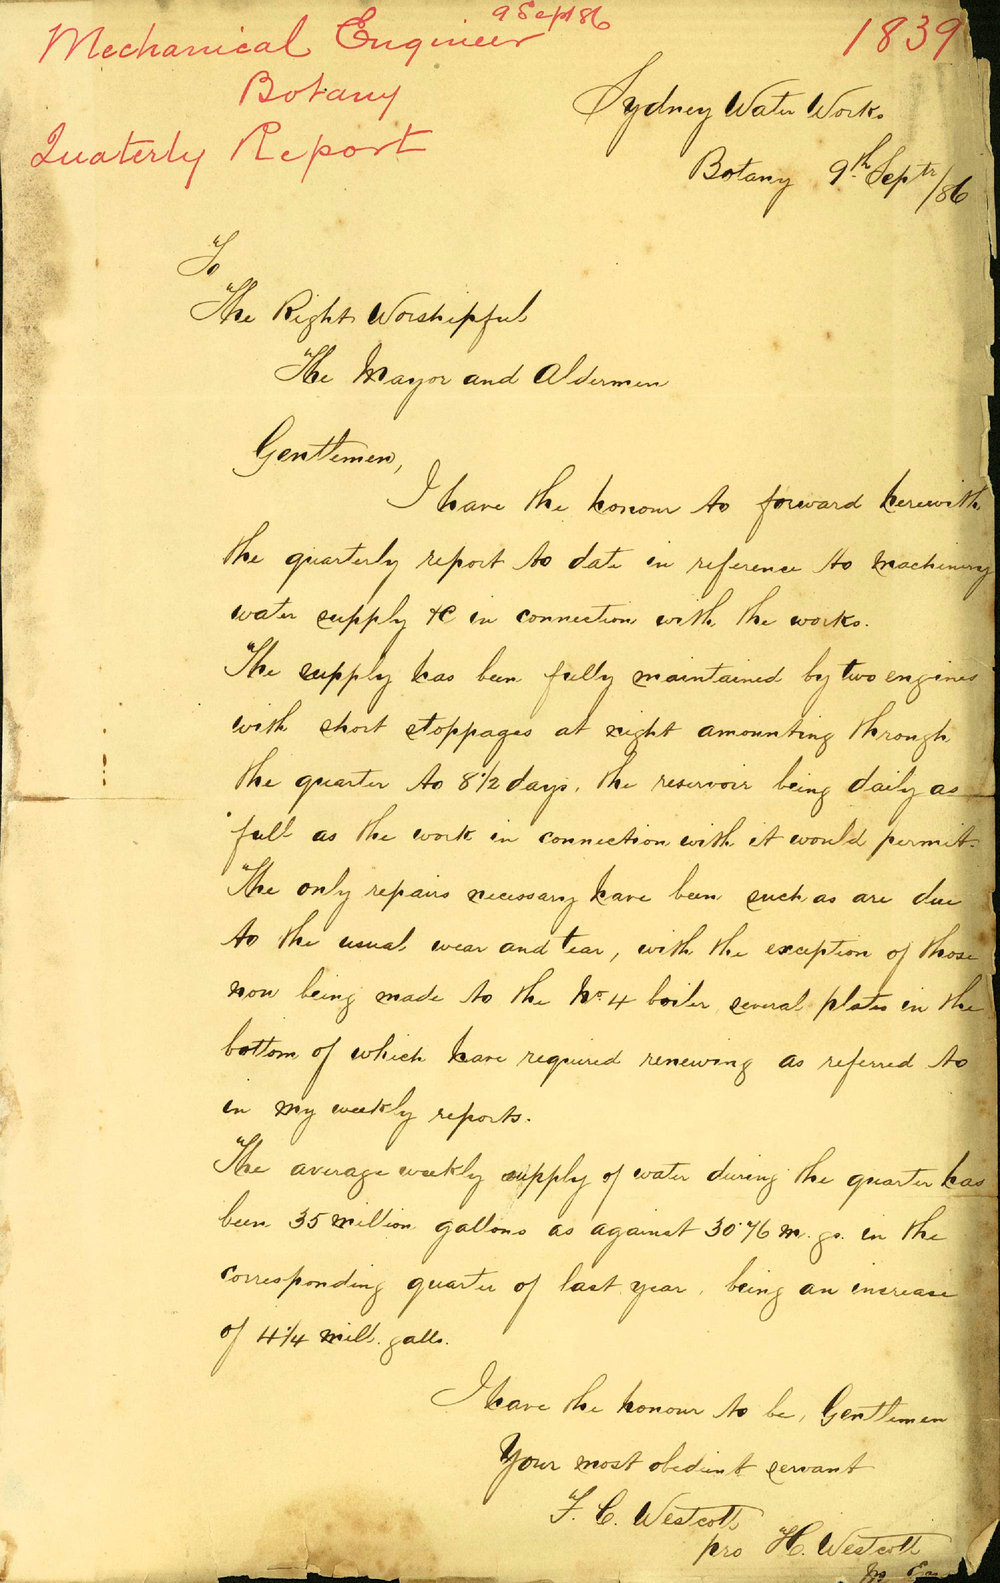 Mechanical Engineer 9 Sept 86
Botany
Quaterly Report
1839
Sydney Water Works
Botany 9th Septr/86
To
The Right Worshipful
The Mayor and Aldermen
Gentlemen,
I have the honour to forward herewith
the quarterly report to date in reference to machinery
water supply &c in connection with the works.
The supply has been fully maintained by two engines
with short stoppages at night amounting through
the quarter to 8 1/2 days, the reservoir being daily as
full as the work in connection with it would permit.
The only repairs necessary have been such as are due
to the usual wear and tear, with the exception of those
now being made to the No 4 boiler several plates in the
bottom of which have required renewing as referred to
in my weekly reports.
The average weekly supply of water during the quarter has
been 35 million gallons as against 30.76 m. gs. in the
corresponding quarter of last year, being an increase
of 4 1/4 mill. galls.
I have the honour to be, Gentlemen
Your most obedient servant
F. C. Westcott
pro H. Westcott